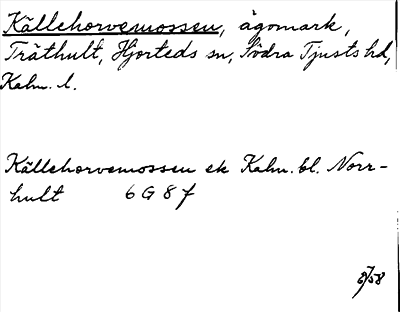 Källehorvemossen, ägomark,
Träthult, Hjorteds sn, Södra Tjusts hd,
Kalm. l.
Källehorvemossen ek Kalm. bl. Norr-
hult 6 G 8 f